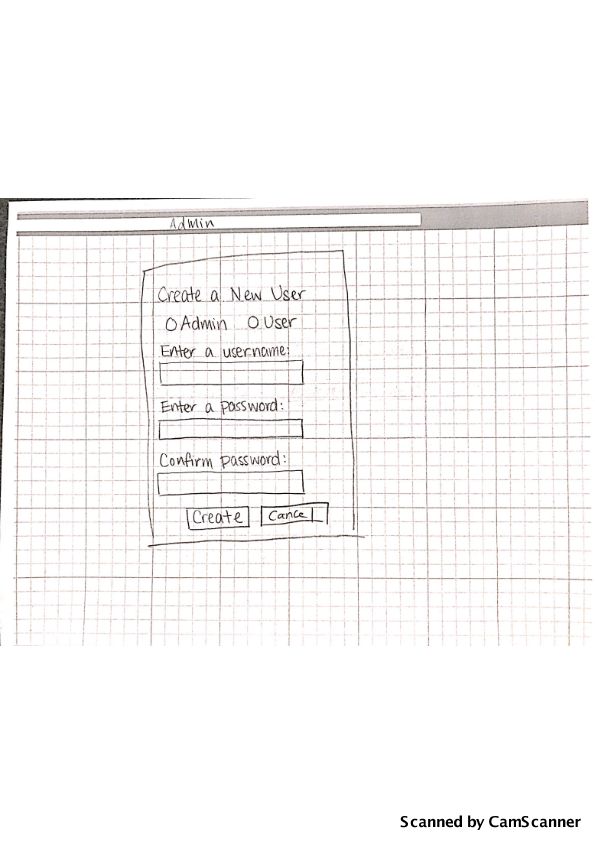 Admin
Create a New User
Admin User
Enter a username:
Enter a password:
Confirm password:
Create Cancel
Scanned by CamScanner